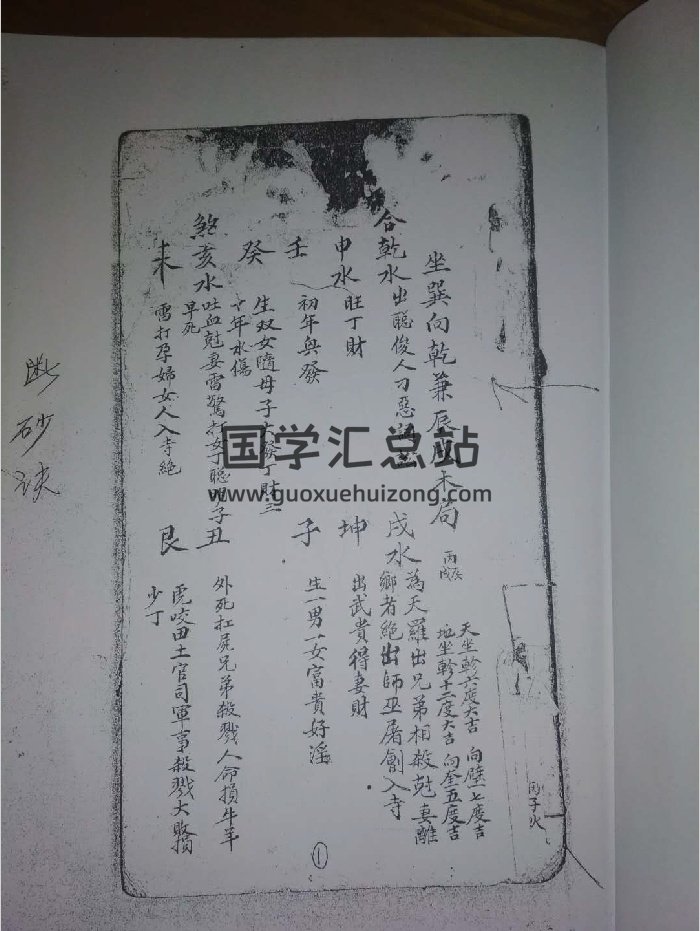 坐巽向乾兼辰戌木局
丙辰
天坐軫六度大吉 向壁七度吉
地坐軫十二度大吉 向奎五度吉
丙子火
合乾水出聰俊人刁惡
戌水為天羅出兄弟相殺尅妻離
鄉者絕出師巫屠劊入寺
申水旺丁財
坤出武貴得妻財
壬初年興發
子生一男一女富貴好淫
癸生双女隨母子大發丁財三
十年水傷
煞亥水吐血尅妻雷驚打女子聰明子
早死
丑外死扛屍兄弟殺戮人命損牛羊
未雷打孕婦女人入寺絕
艮虎咬田土官司軍事殺戮大敗損
少丁
①
断砂诀
国学汇总站
www.guoxuehuizong.com